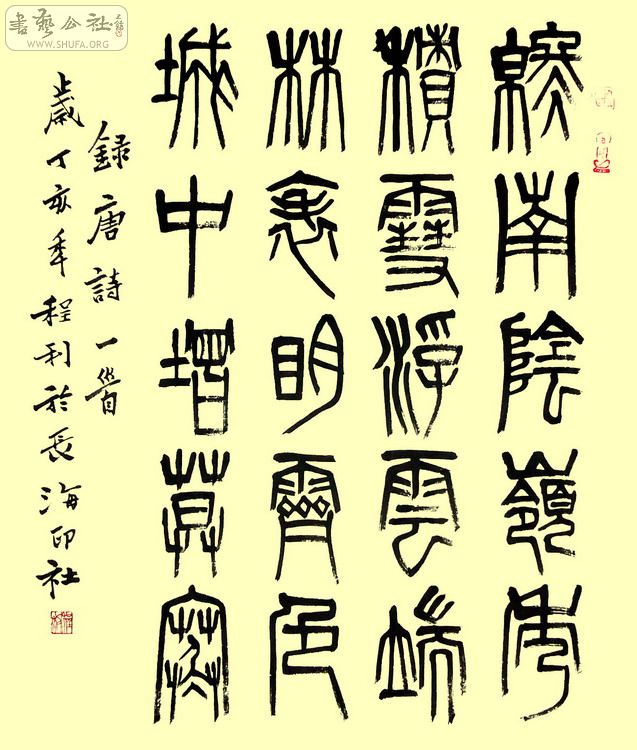 書藝公社
WWW.SHUFA.ORG
終南陰嶺秀
積雪浮雲端
林表明霽色
城中增莫寒
録唐詩一首
歲丁亥年程利於長海印社